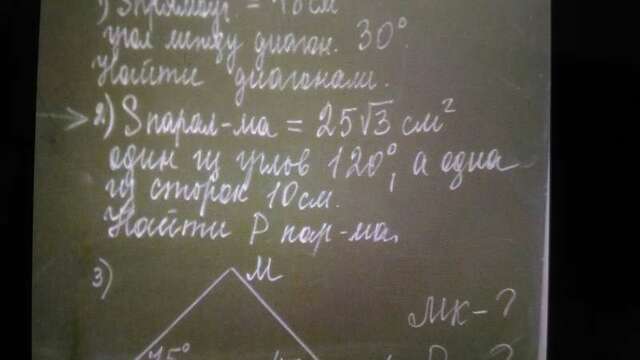 1) Sпрямоуг. = 18см
угол между диагон. 30°
Найти диагонали.
2) Sпарал-ма = 25√3 см²
один из углов 120°, а одна
из сторон 10см.
Найти P пар-ма.
3) М
МК-?
75°